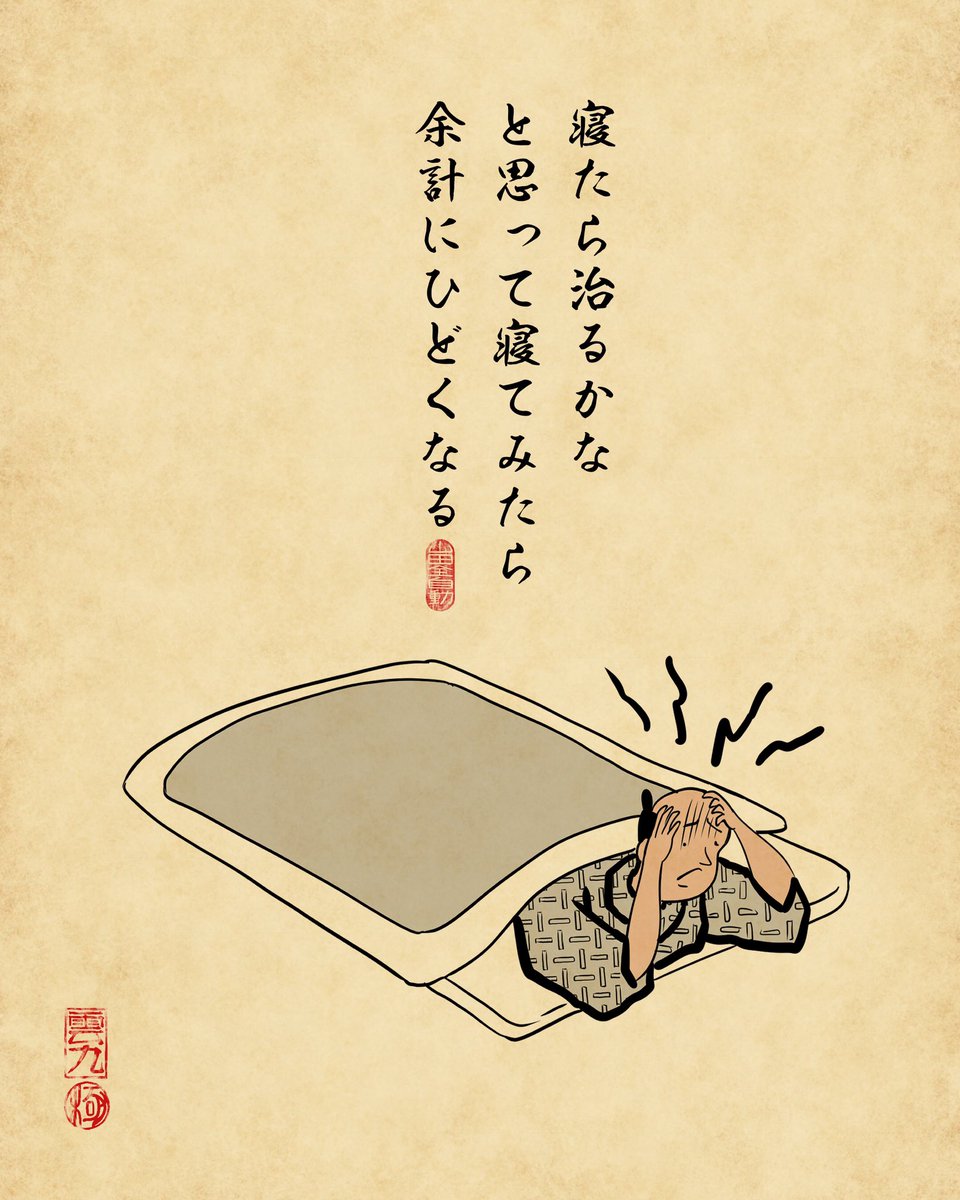 寝たら治るかな
と思って寝てみたら
余計にひどくなる